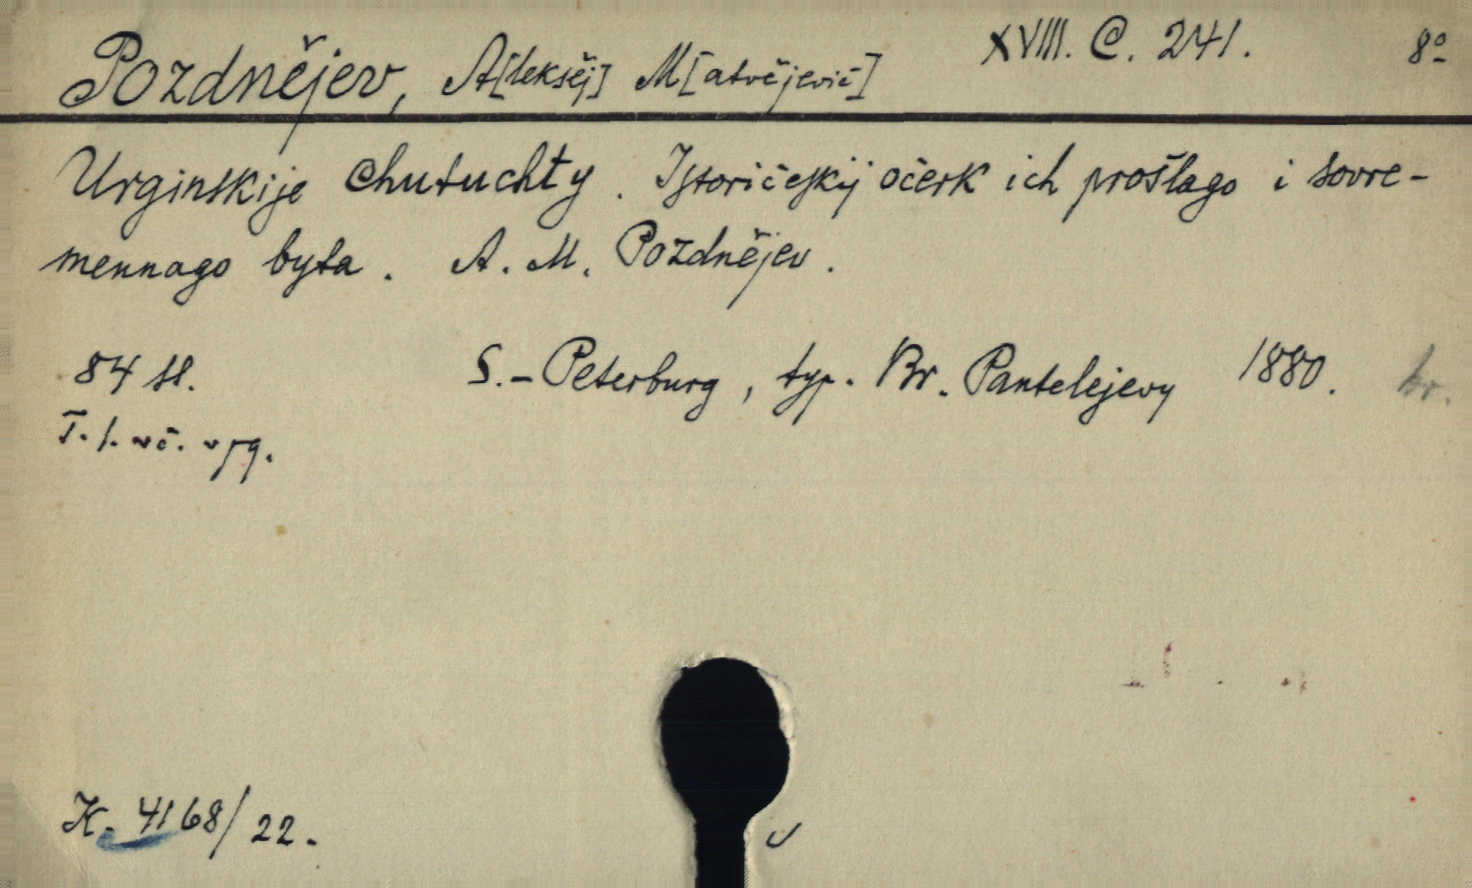 XVIII. C. 241. 8º
Pozdnějev, A[leksěj] M[atvějevič]
Urginskije chutuchty. Istoričeskij očerk ich prošlago i sovre-
mennago byta. A. M. Pozdnějev.
84 st. S.-Peterburg, typ. Br. Pantelejevy 1880. br.
T. l. vč.
K. 4168/22.